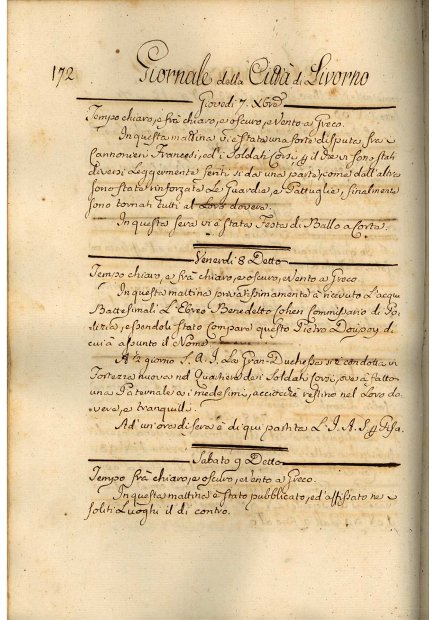 172
Giornale della Città di Livorno
Giovedì 7. Xbre
Tempo chiaro, e frà chiaro, e oscuro, e Vento a Greco.
In questa mattina vi è stata una forte disputa fra i
Cannonieri Francesi, ed i Soldati Corsi, il che vi sono stati
diversi Leggermente feriti si da una parte, come dall'altra
sono state rinforzate Le Guardie, e Pattuglie, finalmente
sono tornati tutti al Loro dovere.
In questa sera vi è stata Festa di Ballo a Corte.
Venerdì 8 Detto
Tempo chiaro, e frà chiaro, e oscuro, e Vento a Greco.
In questa mattina privatissimamente à ricevuto L'acqua
Battesimale L'Ebreo Benedetto Cohen Commissario di Po-
lizia, essendoli stato Compare questo Pietro Doupoy di
cui à assunto il Nome.
A 1/2 giorno S. A. I. La Gran-Duchessa si è condotta in
Fortezza nuova nel Quartiere dei Soldati Corsi, ove à fatto
una Paternale a i medesimi, acciocchè restino nel Loro do-
vere, e tranquilli.
Ad un'ora di sera è di qui partita L. I. A. S. Pisa.
Sabato 9 Detto
Tempo frà chiaro, e oscuro, e Vento a Greco.
In questa mattina è stato pubblicato, ed affissato ne
soliti Luoghi il di contro.